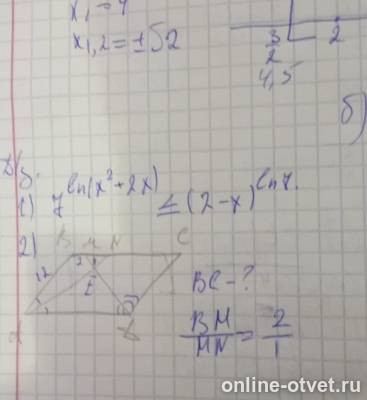 x₁ = 4
x₁,₂ = ±√2
3/2 2
4,5
б)
Д/з.
1) 7^ln(x²+2x) ≤ (2-x)^ln7.
2) B M N C
12
E
A D
BC - ?
BM/MN = 2/1
online-otvet.ru